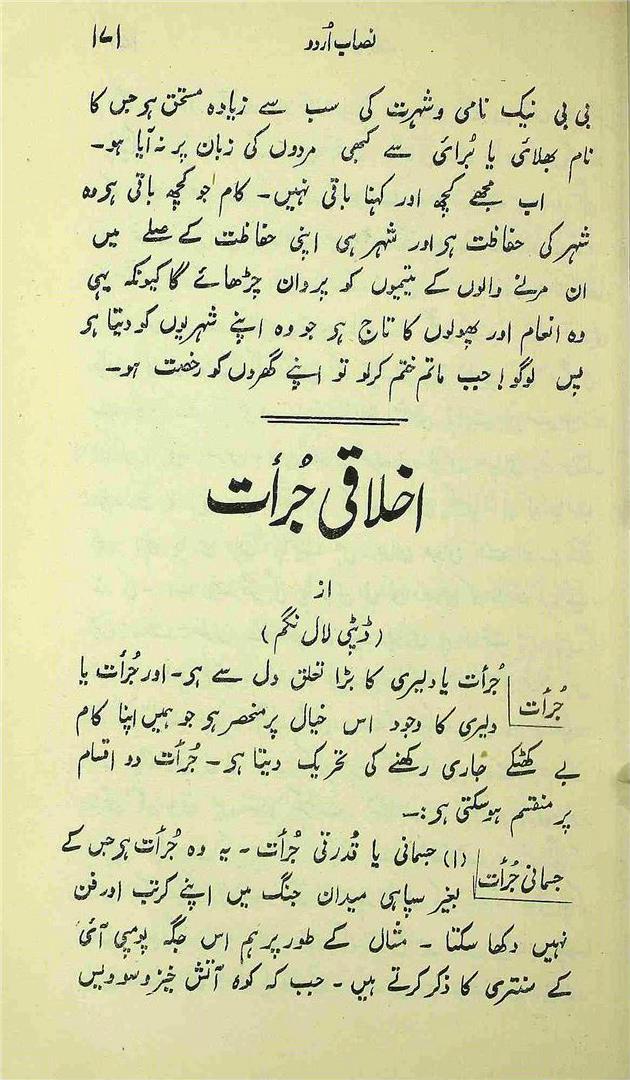 نصاب اُردو
۱۷۱
بی بی نیک نامی و شہرت کی سب سے زیادہ مستحق ہر جس کا
نام بھلائی یا بُرائی سے کبھی مردوں کی زبان پر نہ آیا ہو۔
اب مجھے کچھ اور کہنا باقی نہیں۔ کام جو کچھ باقی ہر وہ
شہر کی حفاظت ہر اور شہر ہی اپنی حفاظت کے صلے میں
ان مرنے والوں کے یتیموں کو پروان چڑھائے گا کیونکہ یہی
وہ انعام اور پھولوں کا تاج ہر جو وہ اپنے شہریوں کو دیتا ہر
پس لوگو! جب ماتم ختم کرلو تو اپنے گھروں کو رخصت ہو۔
اخلاقی جُرأت
از
(ڈپٹی لال نگم)
جُرأت
جُرأت یا دلیری کا بڑا تعلق دل سے ہر۔ اور جُرأت یا
دلیری کا وجود اس خیال پر منحصر ہر جو ہمیں اپنا کام
بے کھٹکے جاری رکھنے کی تحریک دیتا ہر۔ جُرأت دو اقسام
پر منقسم ہوسکتی ہر:۔
جسمانی جُرأت
(۱) جسمانی یا قُدرتی جُرأت۔ یہ وہ جُرأت ہر جس کے
بغیر سپاہی میدان جنگ میں اپنے کرتب اور فن
نہیں دکھا سکتا۔ مثال کے طور پر ہم اس جگہ پومپی آئی
کے سنتری کا ذکر کرتے ہیں۔ جب کہ کوہ آتش خیز وسوویس